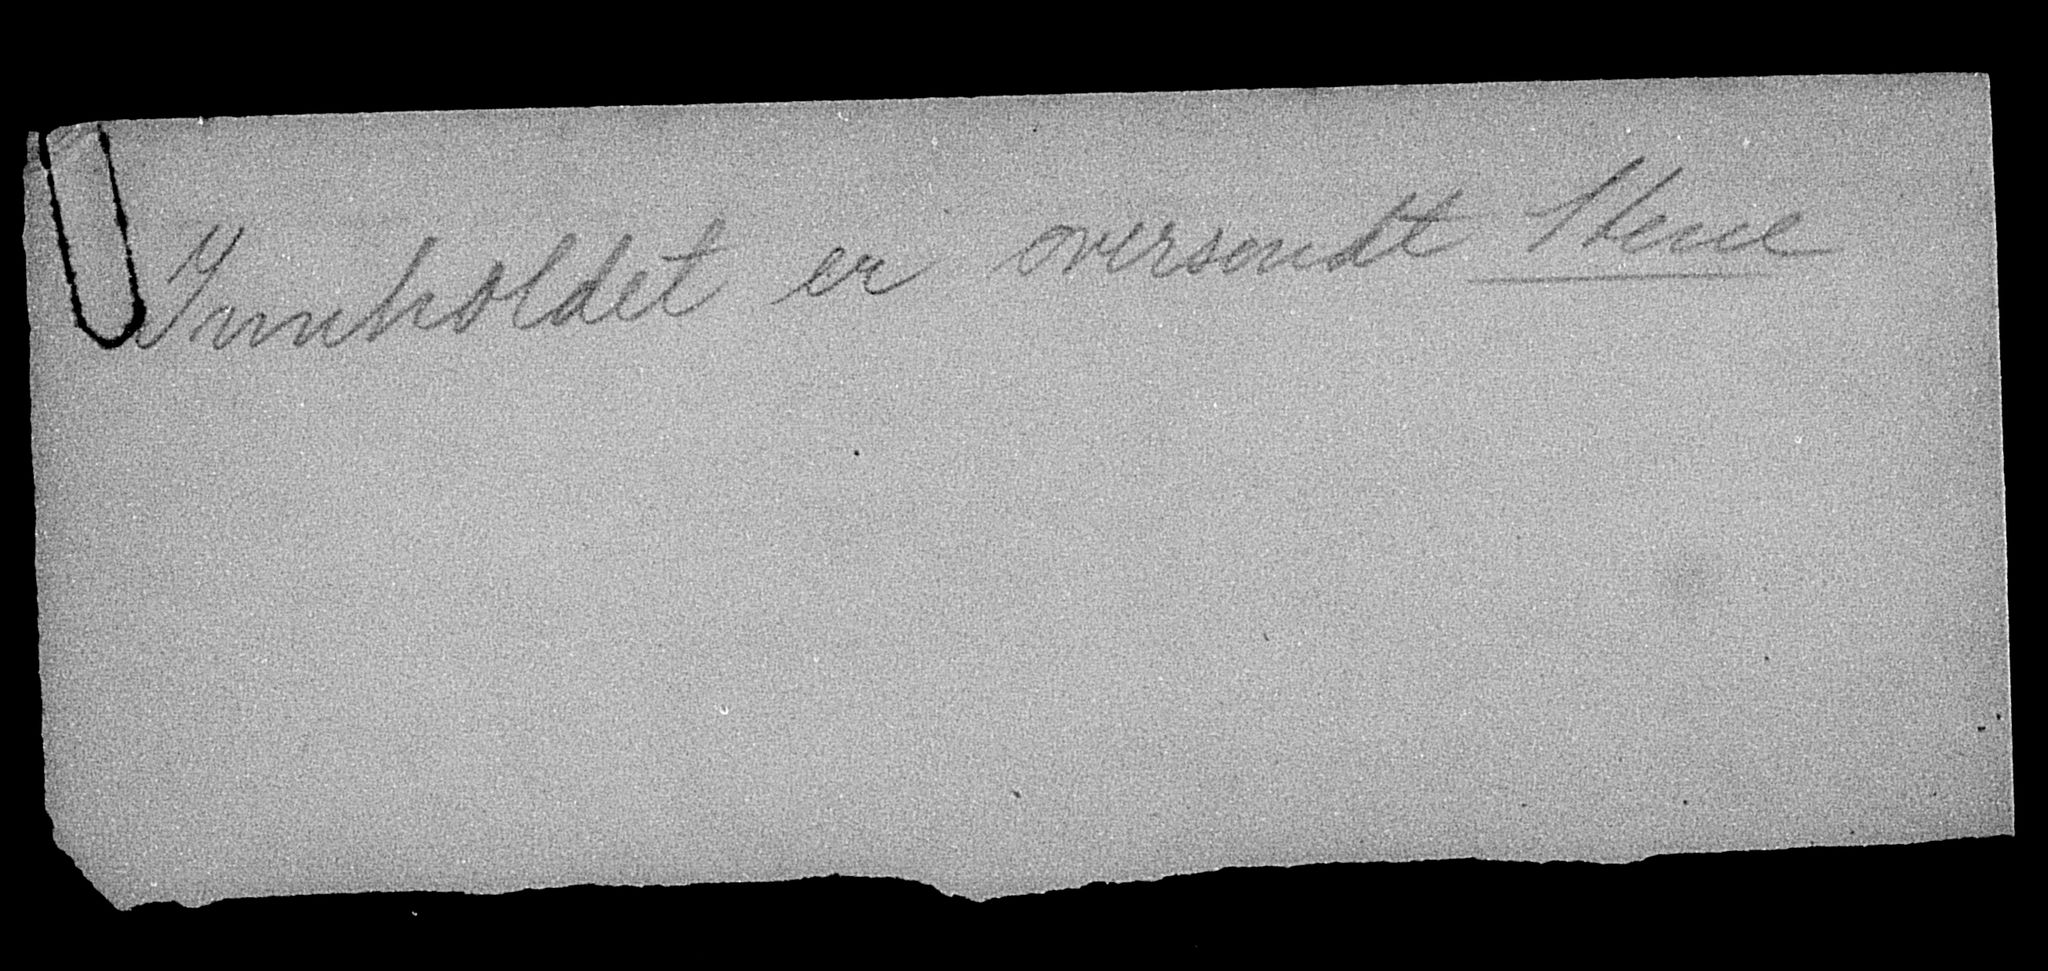 Innholdet er oversendt Stene